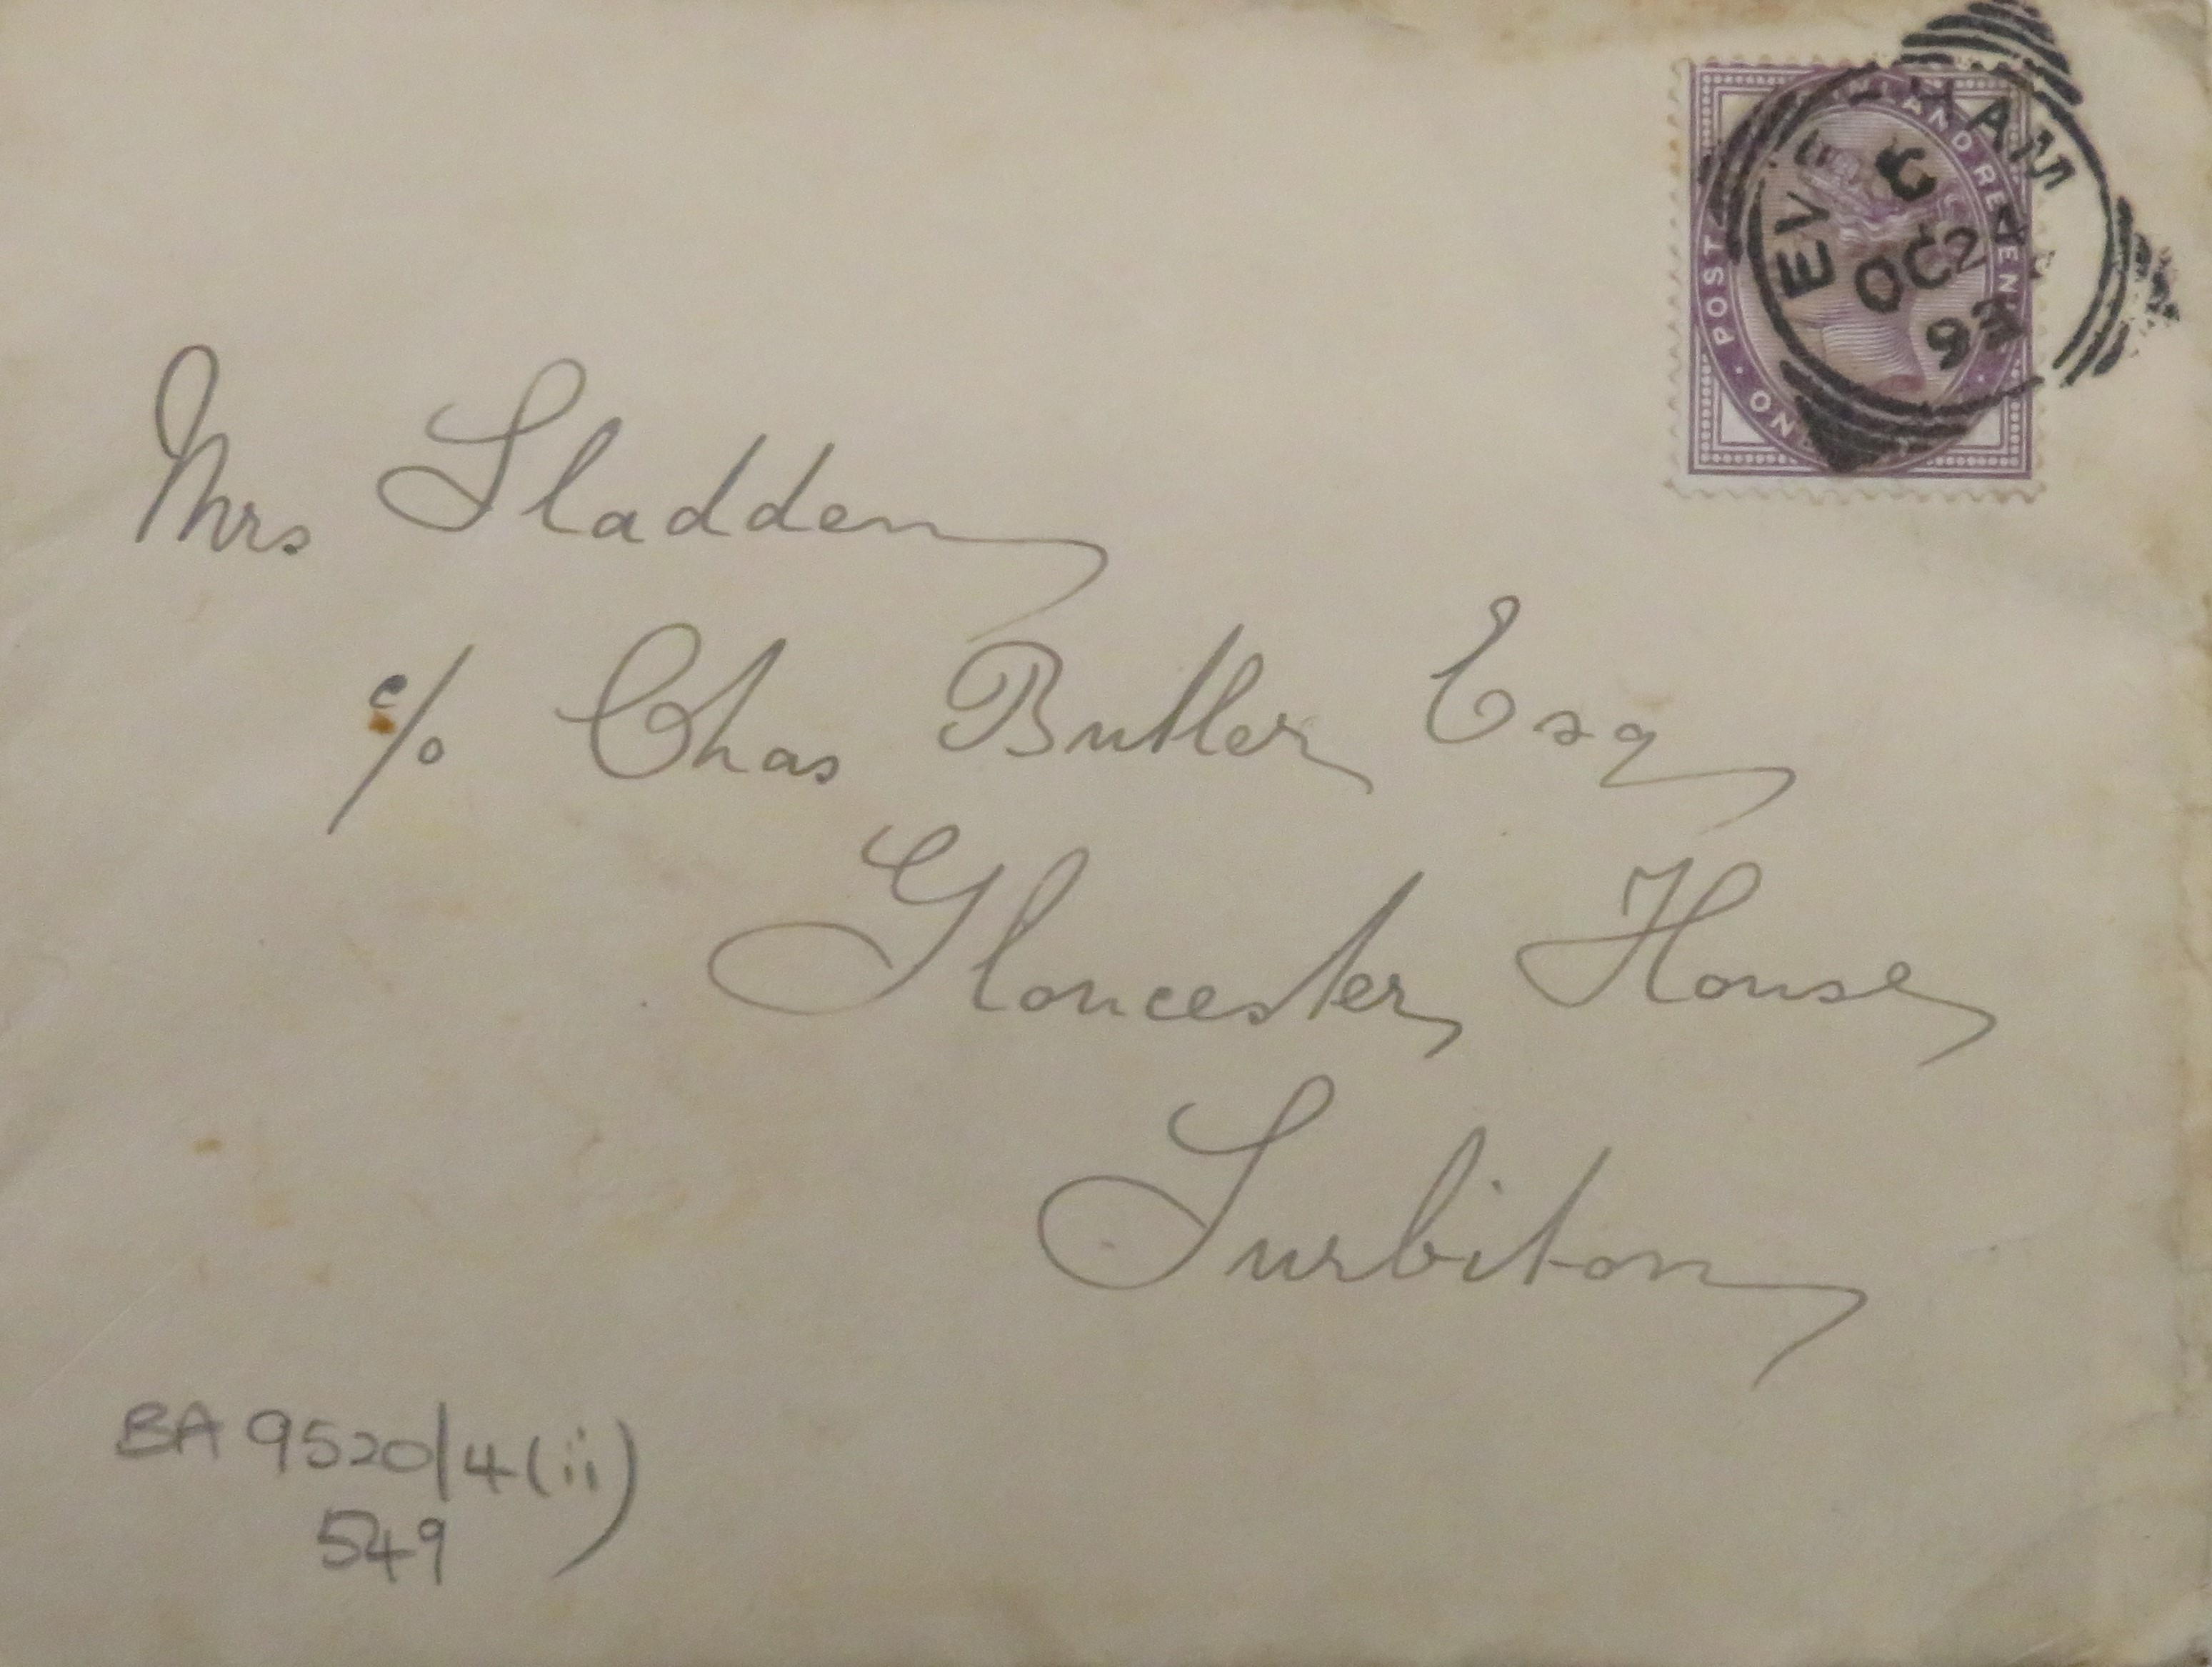 POST AND REVEN
ONE
EVESHAM
OC 2
93
Mrs Sladden
c/o Chas Butler Esq
Gloucester House
Surbiton
BA 9520/4(ii)
549